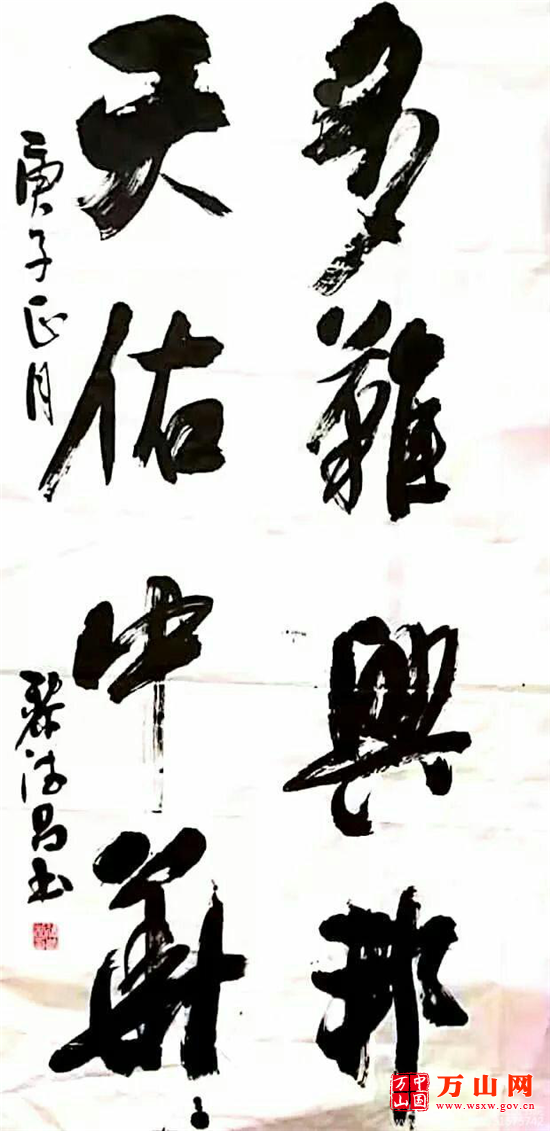 多難興邦
天佑中華
庚子正月
黎洪昌书
中国
万山
万山网
www.wsxw.gov.cn